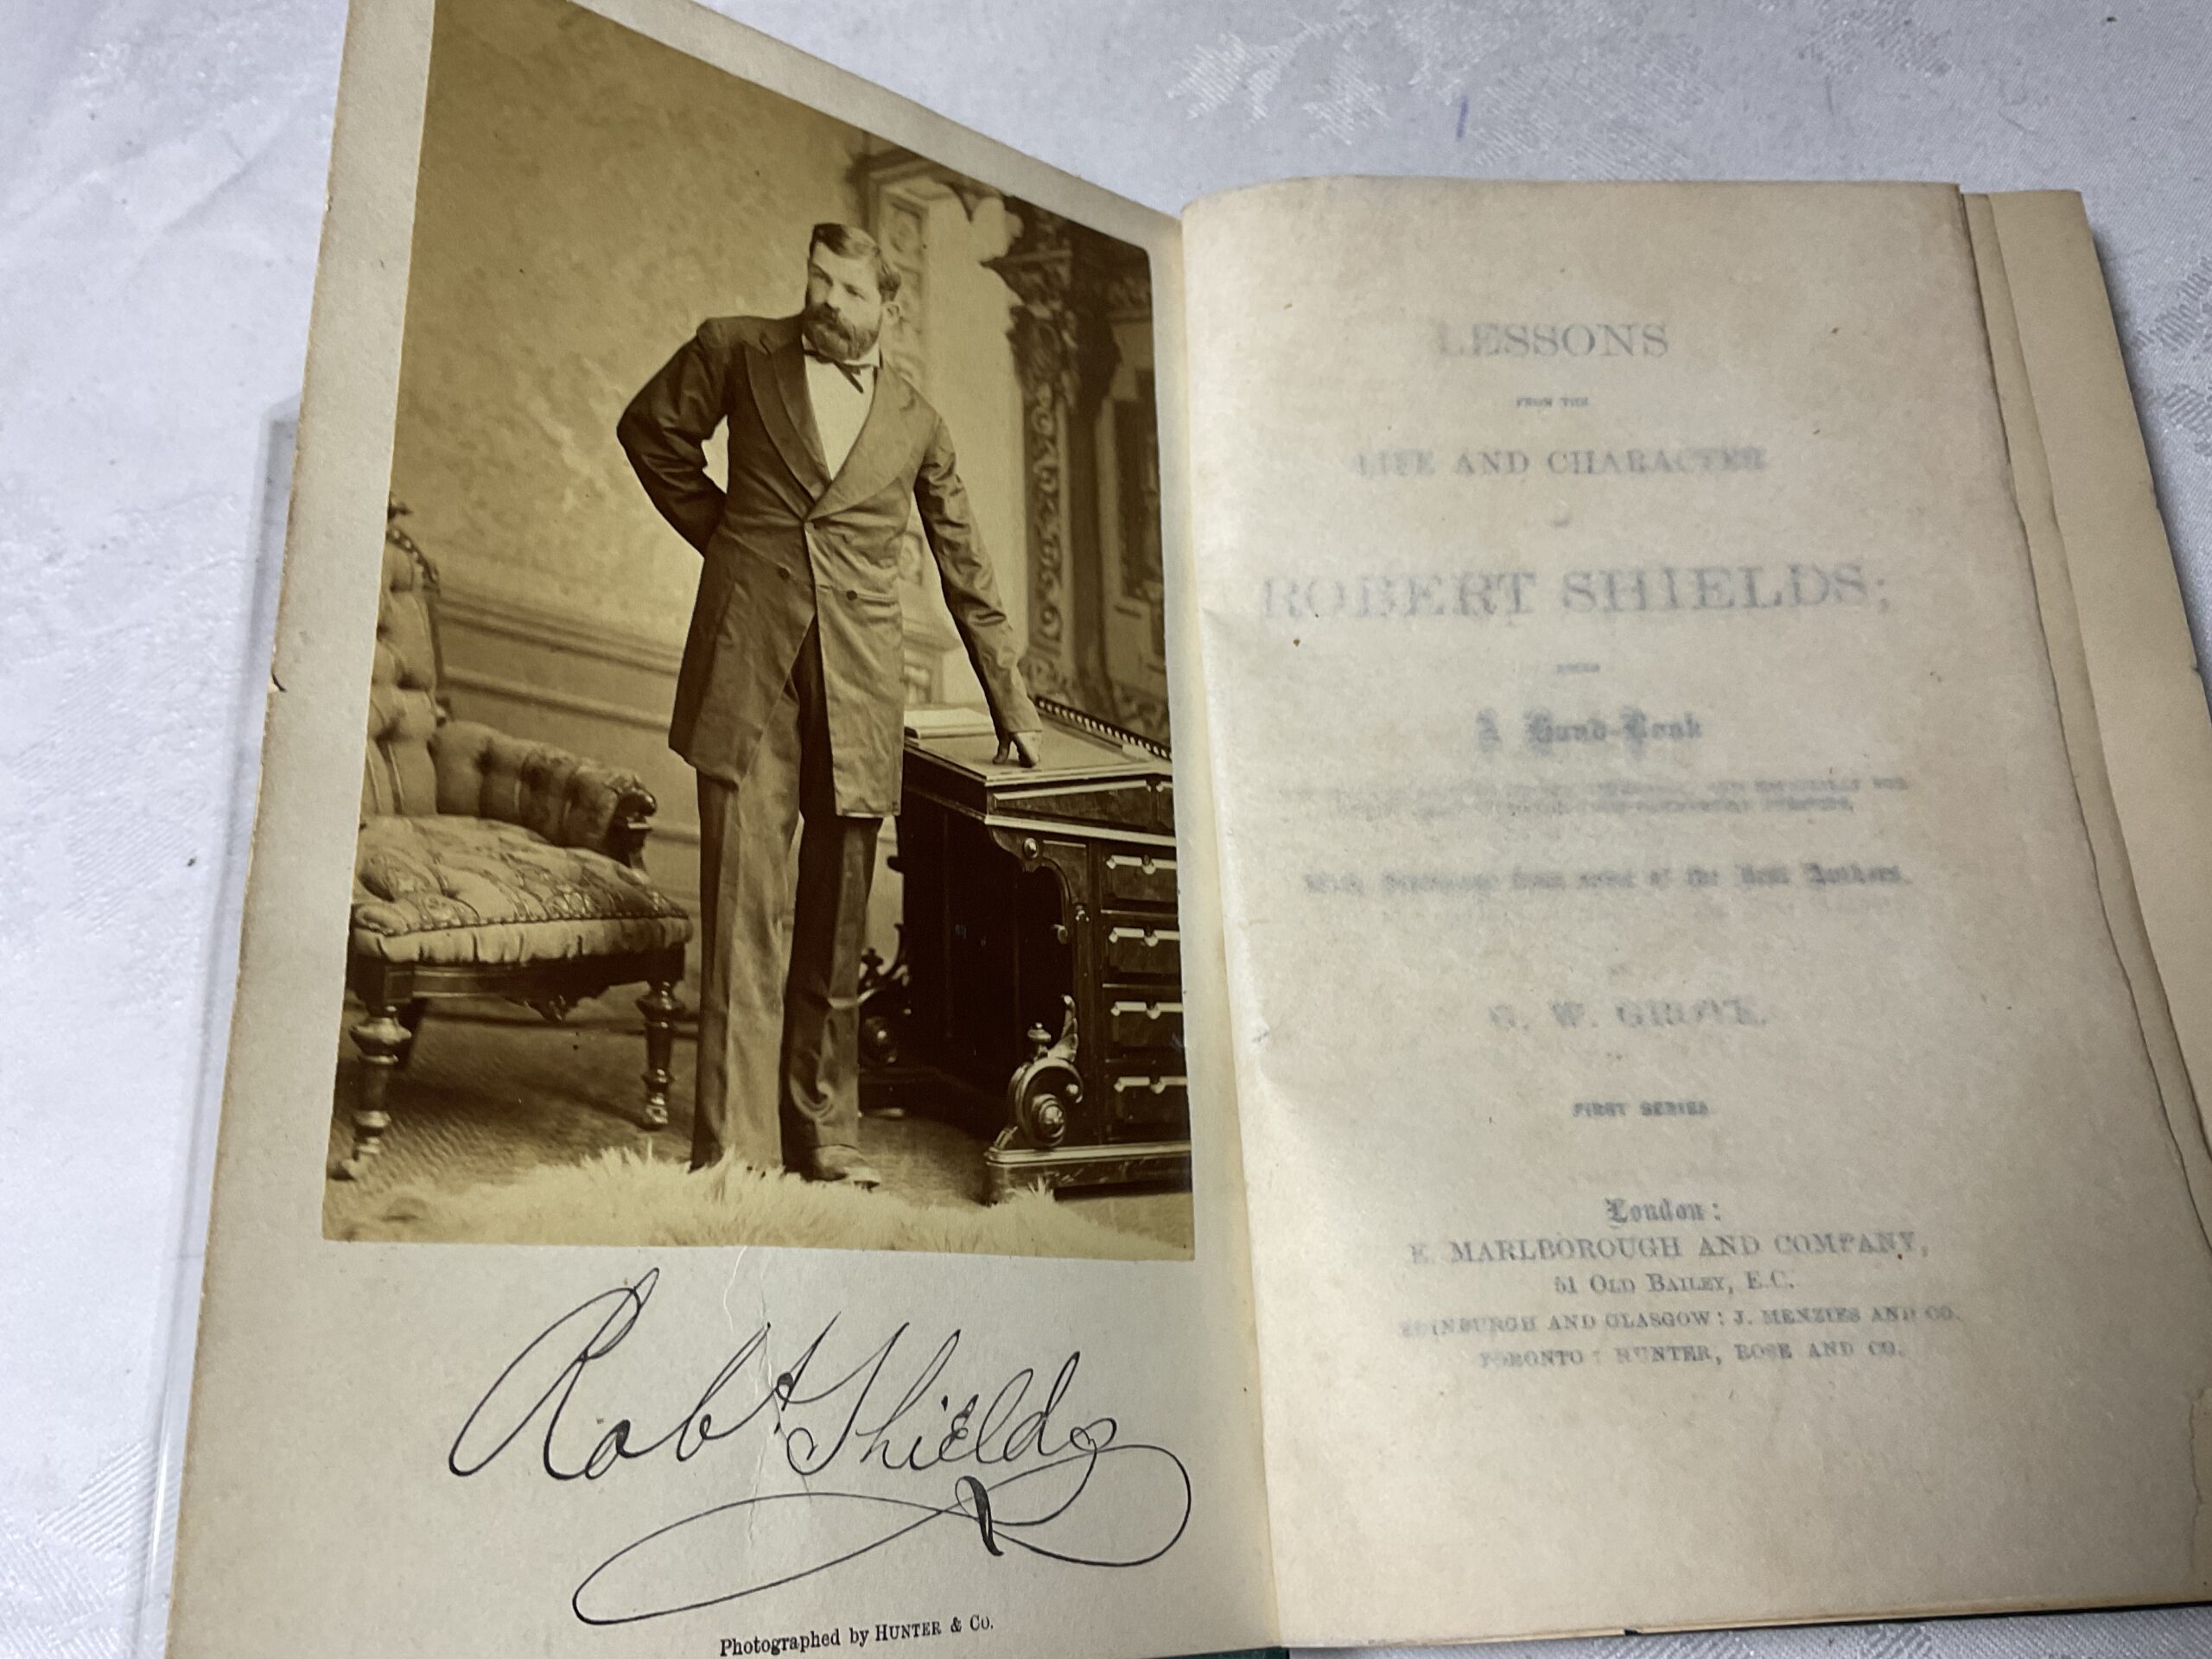 Robt. Shields
Photographed by HUNTER & Co.
LESSONS
FROM THE
LIFE AND CHARACTER
ROBERT SHIELDS;
A Hand-Book
AND ESPECIALLY FOR
from some of the Best Authors.
G. W.
FIRST SERIES
London:
E. MARLBOROUGH AND COMPANY,
51 OLD BAILEY, E.C.
EDINBURGH AND GLASGOW: J. MENZIES AND CO.
TORONTO: HUNTER, ROSE AND CO.